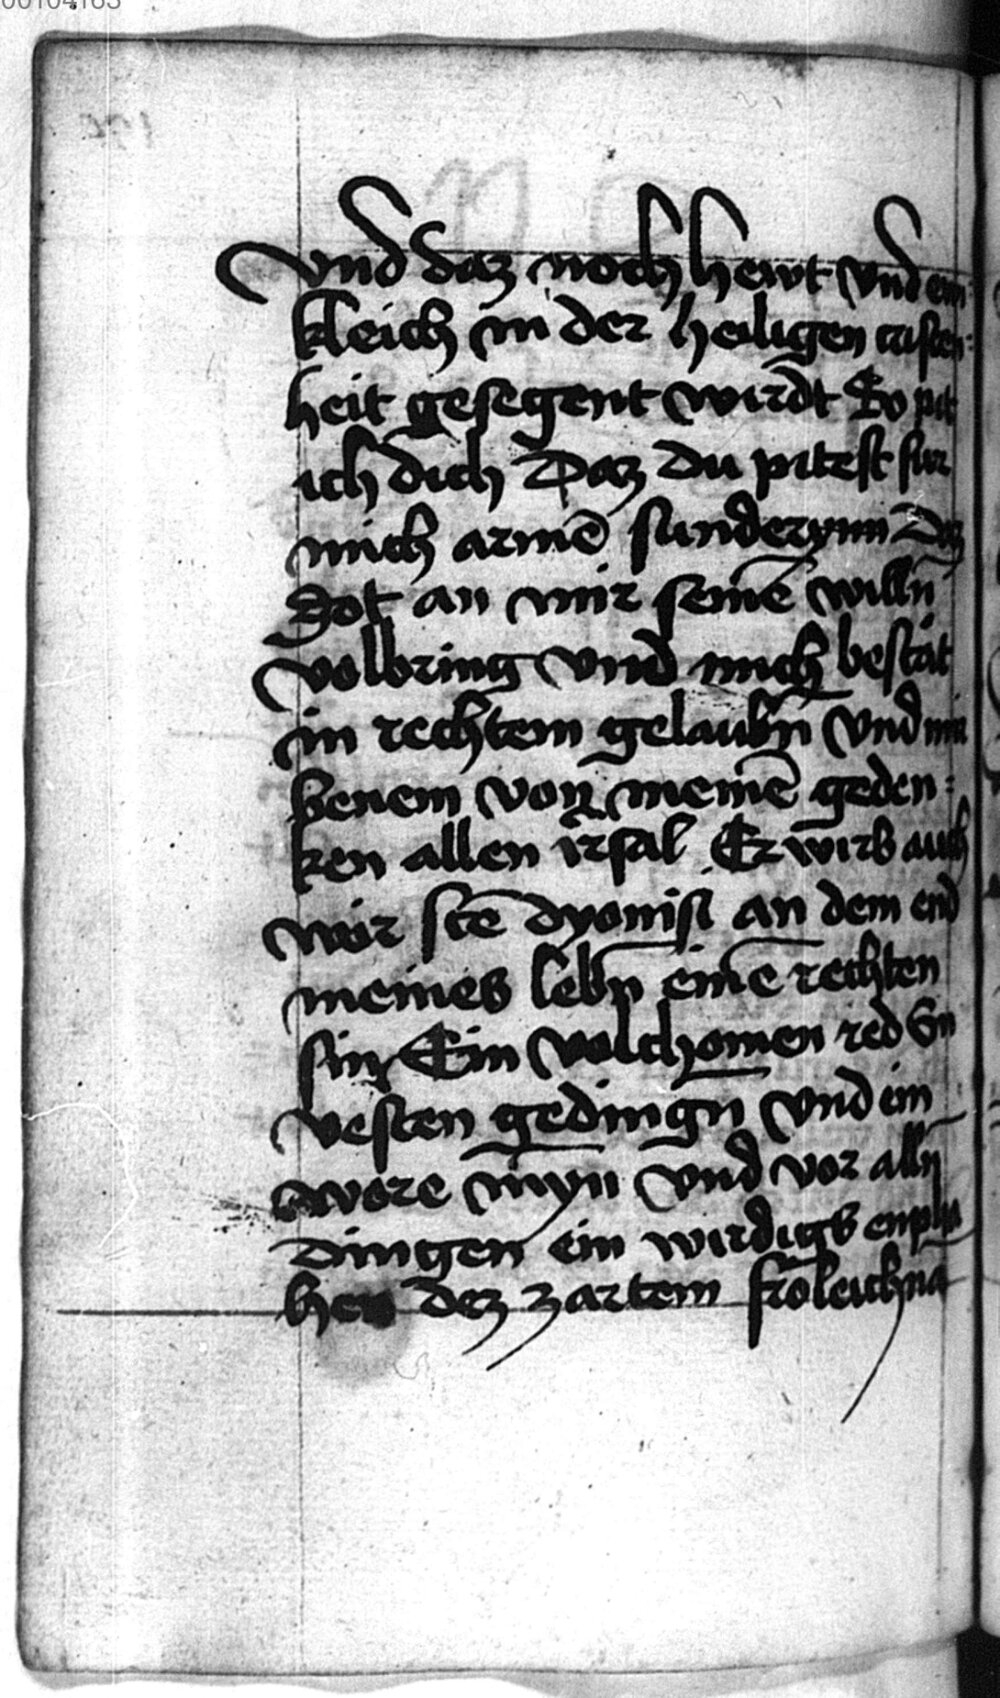 00104163
Vnd daz noch hewt vnd em
kleich in der heiligen cristen:
heit gesegent wirdt So pit
ich dich Daz du pitest fur
mich armē sunderynn Daz
Got an mir seinē willn̄
volbring vnd mich bestät
in rechtem gelaubn̄ vnd mit
kenem von meinē geden:
ken allen irsal Erwirb auch
mir stē dyonisi an dem end
meines lebn̄ einē rechten
sin Ein volchomen red Ein
vesten gedingn̄ vnd ein
wore mȳn vnd vor alln̄
dingen ein wirdigs enpha
hen dez zartem froleichna